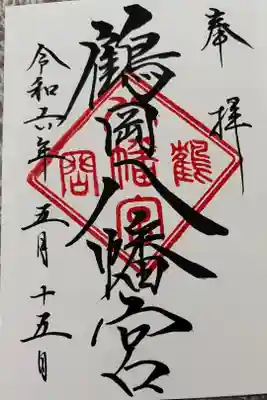 奉拝
鶴岡八幡宮
令和六年五月十五日
鶴岡
八幡宮